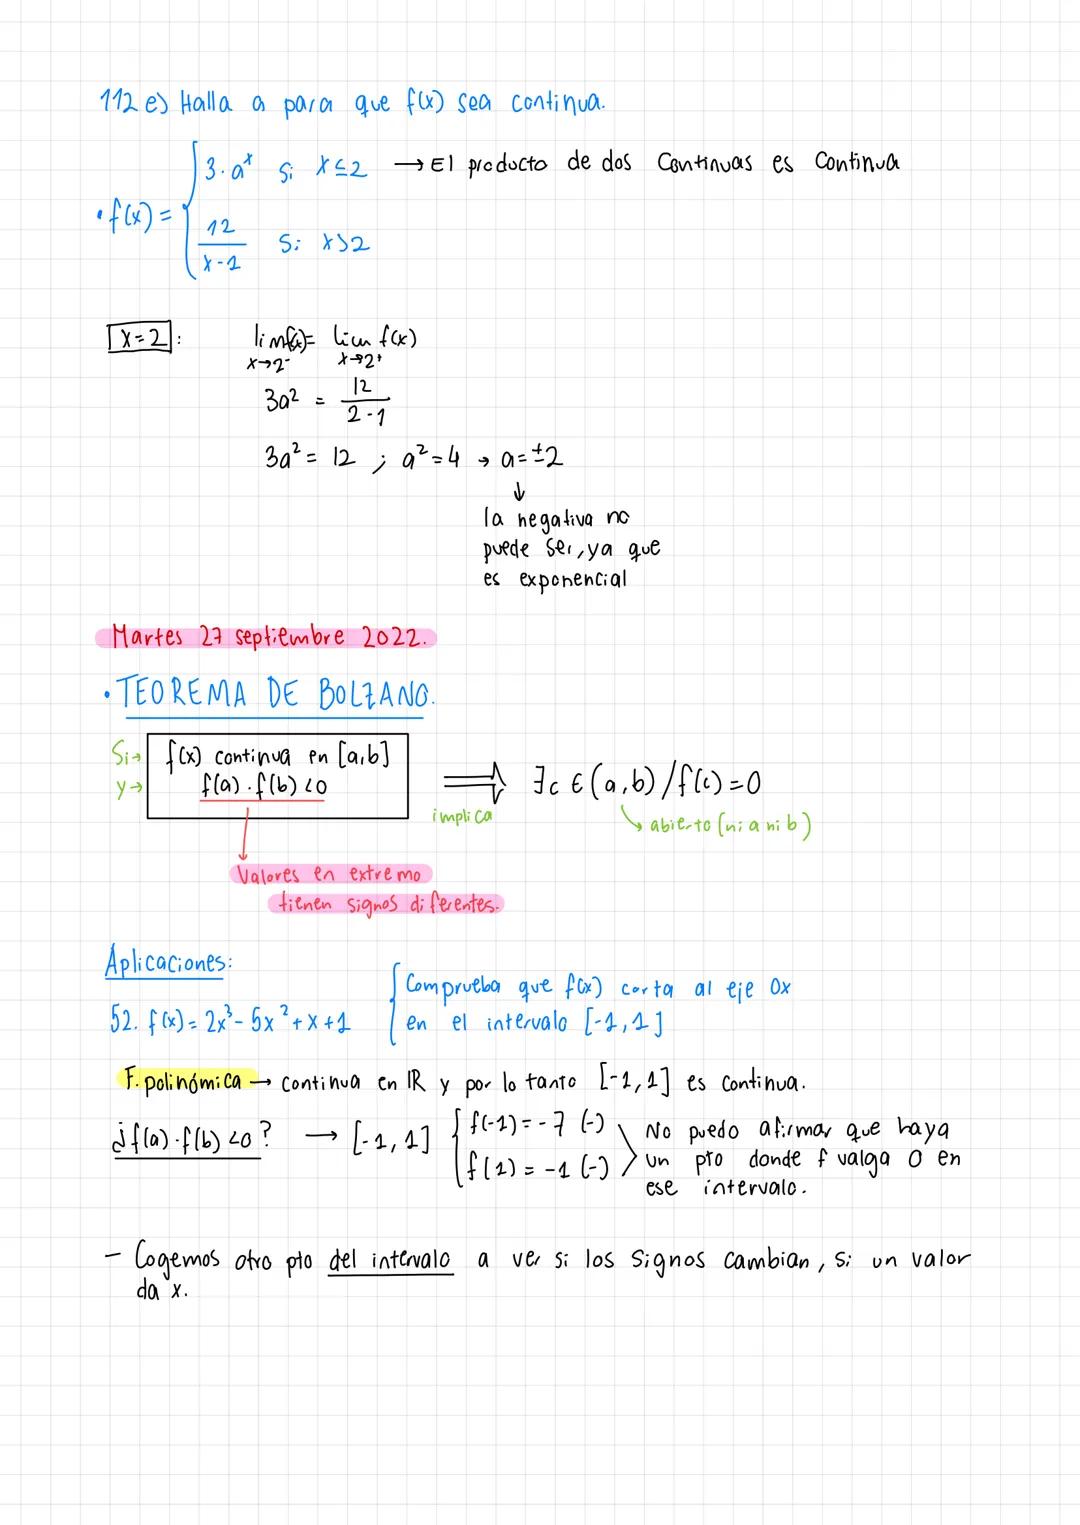 112 e) Halla a para que f(x) sea continua.
• f(x) = { 3·aˣ si x≤2 → El producto de dos continuas es continua
12/(x-1) si x>2
x=2 : lim f(x) = lim f(x)
x→2⁻ x→2⁺
3a² = 12/(2-1)
3a² = 12 ; a² = 4 → a = ±2
↓
la negativa no
puede ser, ya que
es exponencial
Martes 27 septiembre 2022.
• TEOREMA DE BOLZANO.
Si→ f(x) continua en [a,b]
y→ f(a)·f(b) <0 ⟹ ∃c ∈ (a,b) / f(c)=0
implica
↘ abierto (ni a ni b)
Valores en extremo
tienen signos diferentes.
Aplicaciones:
52. f(x) = 2x³ - 5x² + x + 1 { Comprueba que f(x) corta al eje Ox
en el intervalo [-1,1]
F. polinómica → continua en IR y por lo tanto [-1,1] es continua.
¿f(a)·f(b) <0? → [-1,1] { f(-1) = -7 (-) No puedo afirmar que haya
f(1) = -1 (-) un pto donde f valga 0 en
ese intervalo.
- Cogemos otro pto del intervalo a ver si los signos cambian, si un valor
da x.